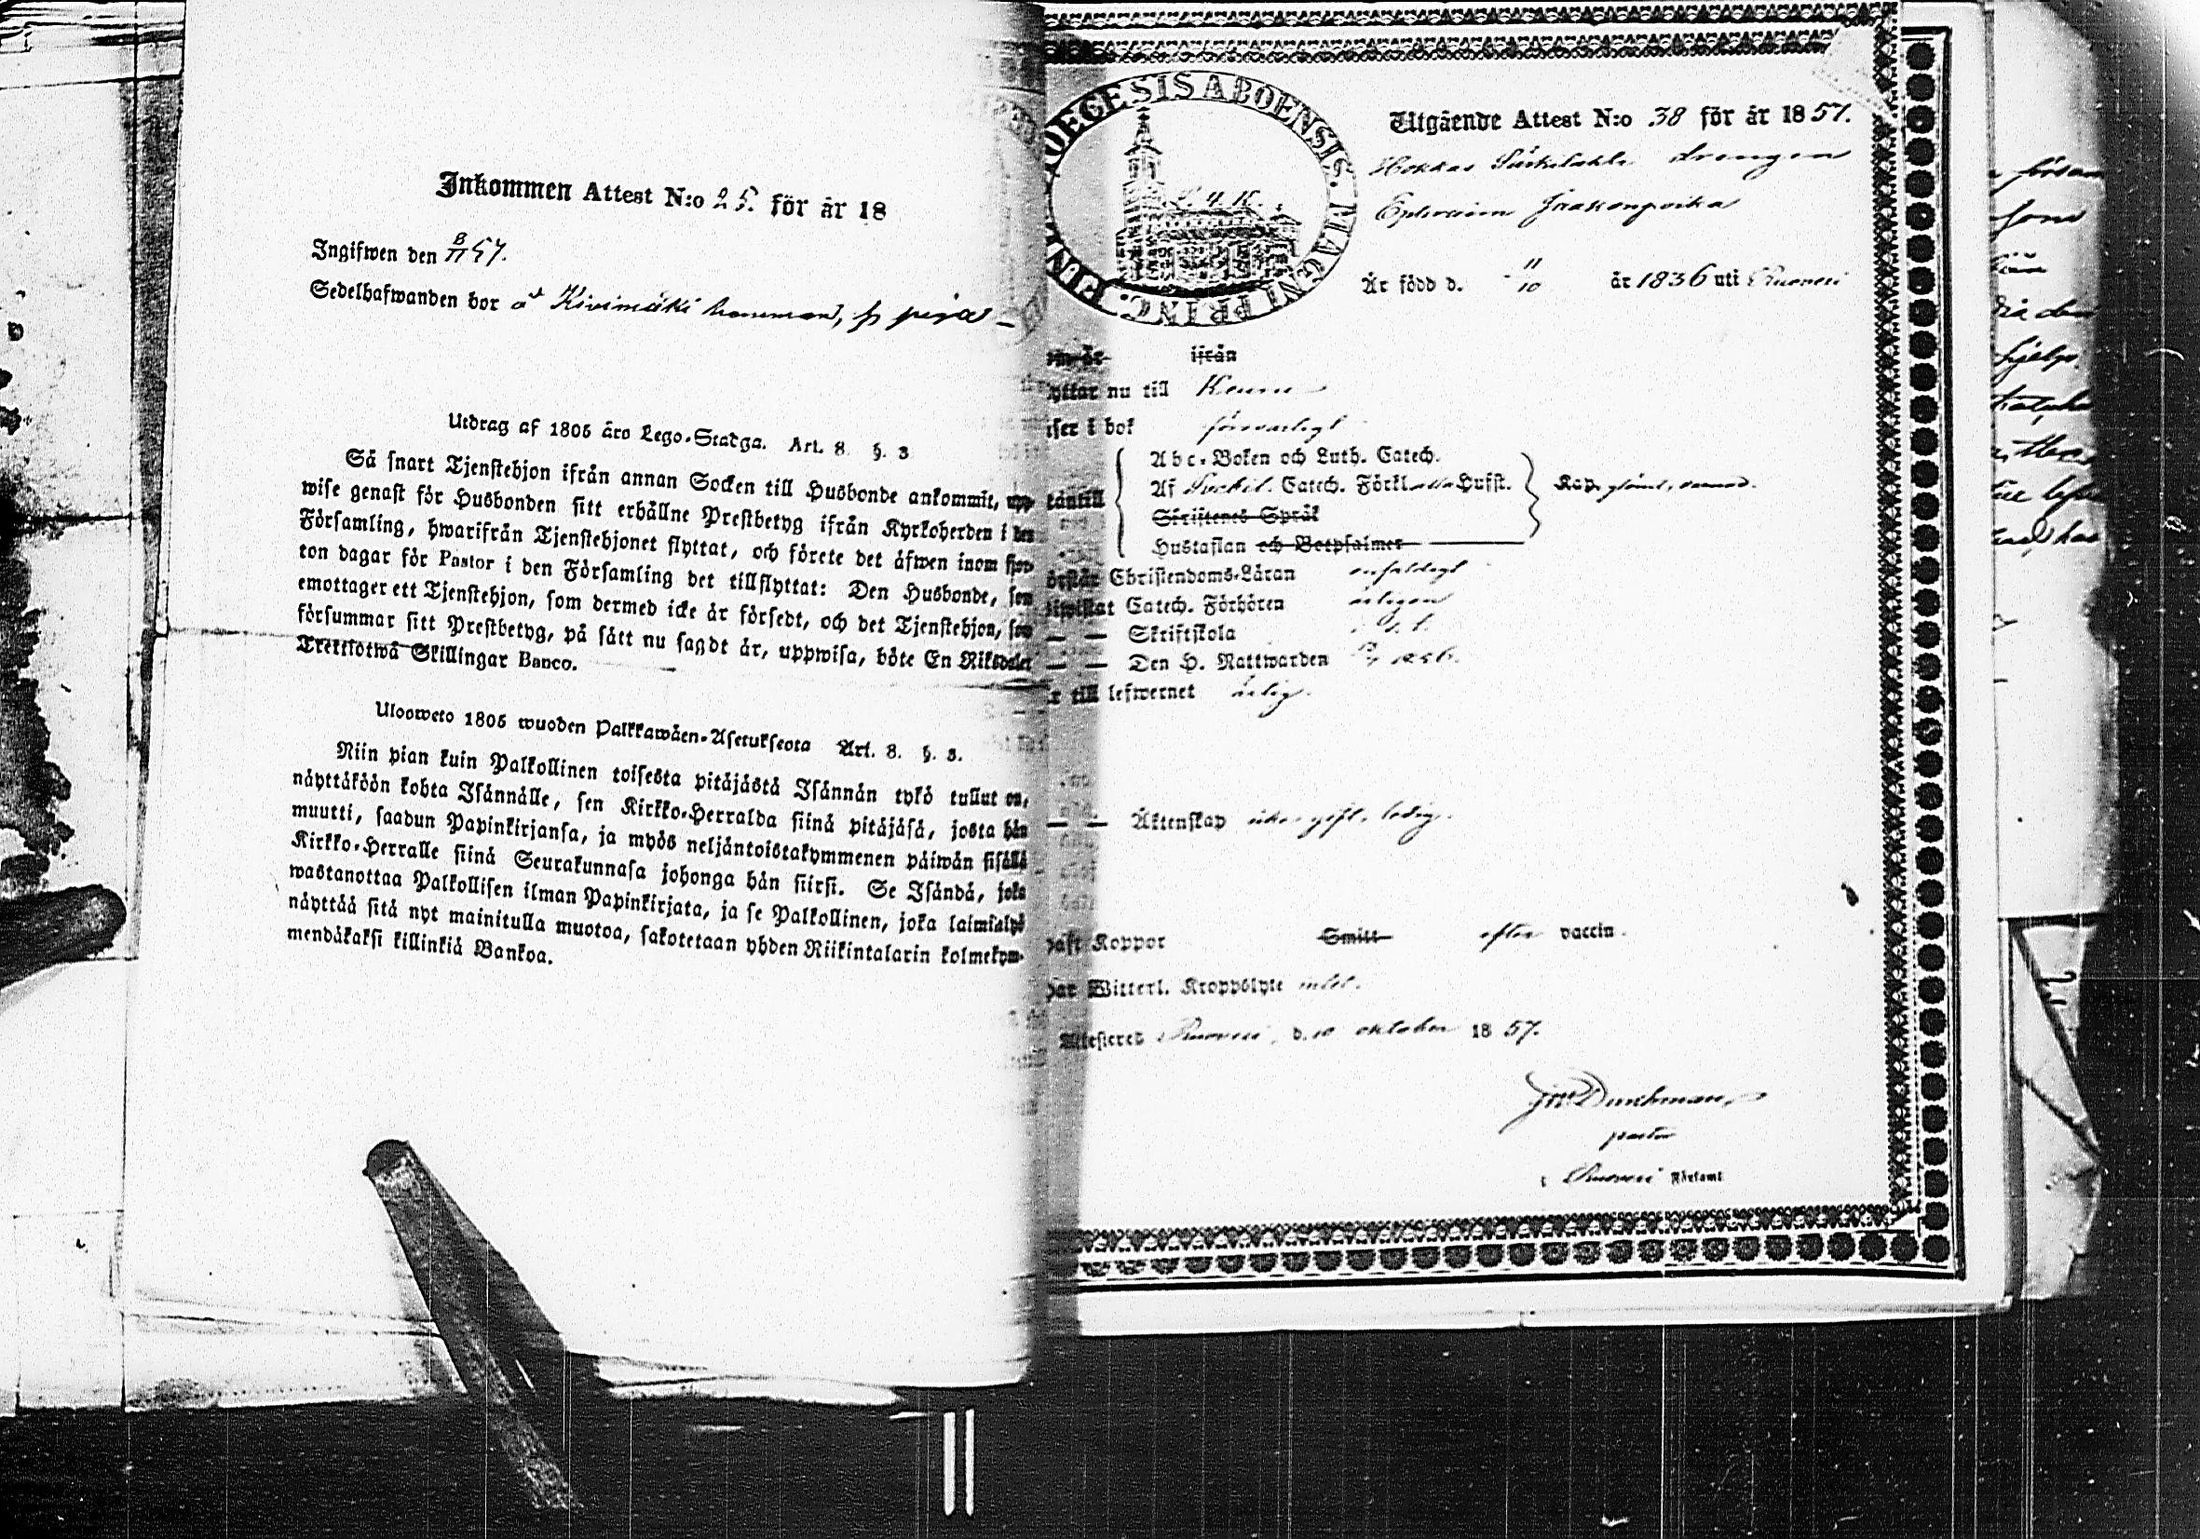 Inkommen Attest N:o 25. för år 18
Ingifwen den 8/11 57.
Sedelhafwanden bor å Kivimäki hemman,
Utdrag af 1805 års Lego-Stadga. Art. 8 §. 3
Så snart Tjenstehjon ifrån annan Socken till Husbonde ankommit, upp-
wise genast för Husbonden sitt erhållne Prestbetyg ifrån Kyrkoherden i den
Församling, hwarifrån Tjenstehjonet flyttat, och förete det äfwen inom fjor-
ton dagar för Pastor i den Församling det tillflyttat: Den Husbonde, som
emottager ett Tjenstehjon, som dermed icke är försedt, och det Tjenstehjon, som
försummar sitt Prestbetyg, på sätt nu sagdt är, uppwisa, böte En Riksdaler
Trettiotwå Skillingar Banco.
Ulosweto 1805 wuoden Palkkawäen-Asetuksesta Art. 8. §. 3.
Niin pian kuin Palkollinen toisesta pitäjästä Isännän tykö tullut on,
näyttäköön kohta Isännälle, sen Kirkko-Herralda siinä pitäjäsä, josta hän
muutti, saadun Papinkirjansa, ja myös neljäntoistakymmenen päiwän sisällä
Kirkko-Herralle siinä Seurakunnasa johonga hän siirsi. Se Isändä, joka
wastanottaa Palkollisen ilman Papinkirjata, ja se Palkollinen, joka laiminlyö
näyttää sitä nyt mainitulla muotoa, sakotetaan yhden Riikintalarin kolmekym-
mendäkaksi killinkiä Bankoa.
DIOECESIS ABOENSIS. MAGNI PRINC. FINL.
Utgående Attest N:o 38 för år 1857.
drengen
Ephraim Jaakonpoika
Är född d. 11/10 år 1836 uti Ruovesi
ifrån
yttar nu till Keuru
iser i bok försvarligt
Abc-Boken och Luth. Catech.
Af Svebil. Catech. Förkl. Hufst.
utantill
Skriftenes Språk
Hustaflan och Botpsalmer
örstår Christendoms-Läran enfaldigt
Catech. Förhören årligen
— — Skriftskola
— — Den H. Nattwarden
r till lefwernet ärlig.
— — Äktenskap ledig.
haft Koppor Smitt efter vaccin.
har Witterl. Kroppslyte intet.
Attesteres Ruovesi, d. 10 oktober 1857.
pastor
i Ruovesi Församl